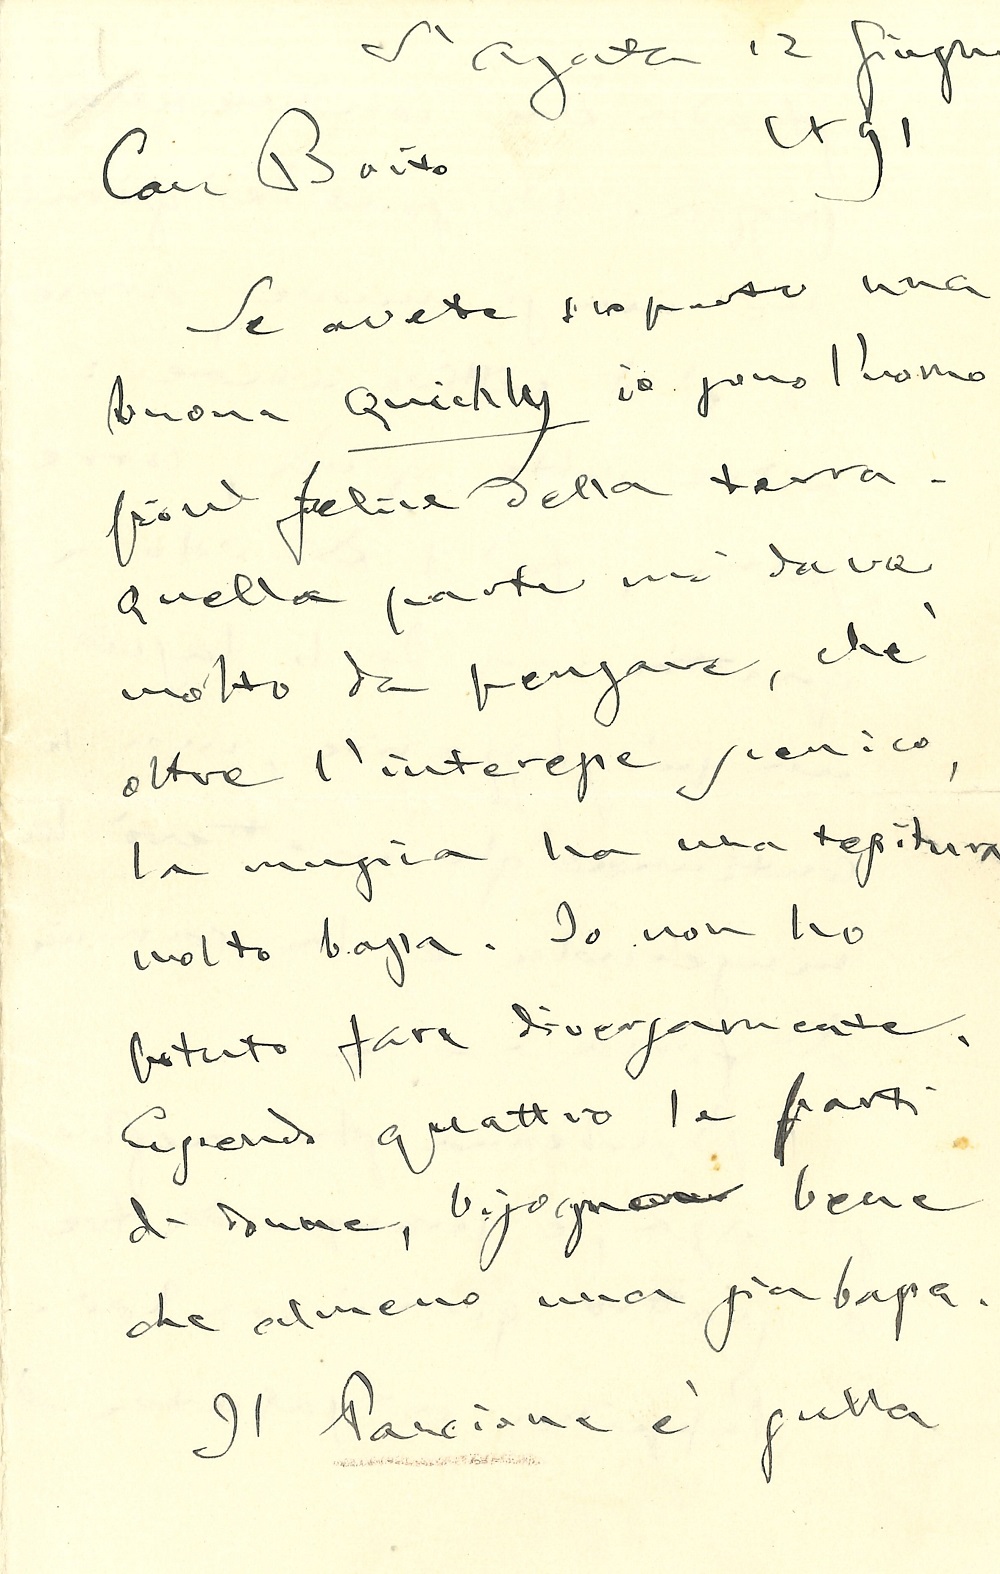 S. Agata 12 Giugno
1891
Car Boito
Se avete scoperto una
buona Quickly io sono l'uomo
più felice della terra -
Quella parte mi dava
molto da pensare, chè
oltre l'interesse scenico,
la musica ha una tessitura
molto bassa. Io non ho
potuto fare diversamente.
Essendo quattro le parti
di donne, bisogna bene
che almeno una sia bassa.
Il Pancione è sulla